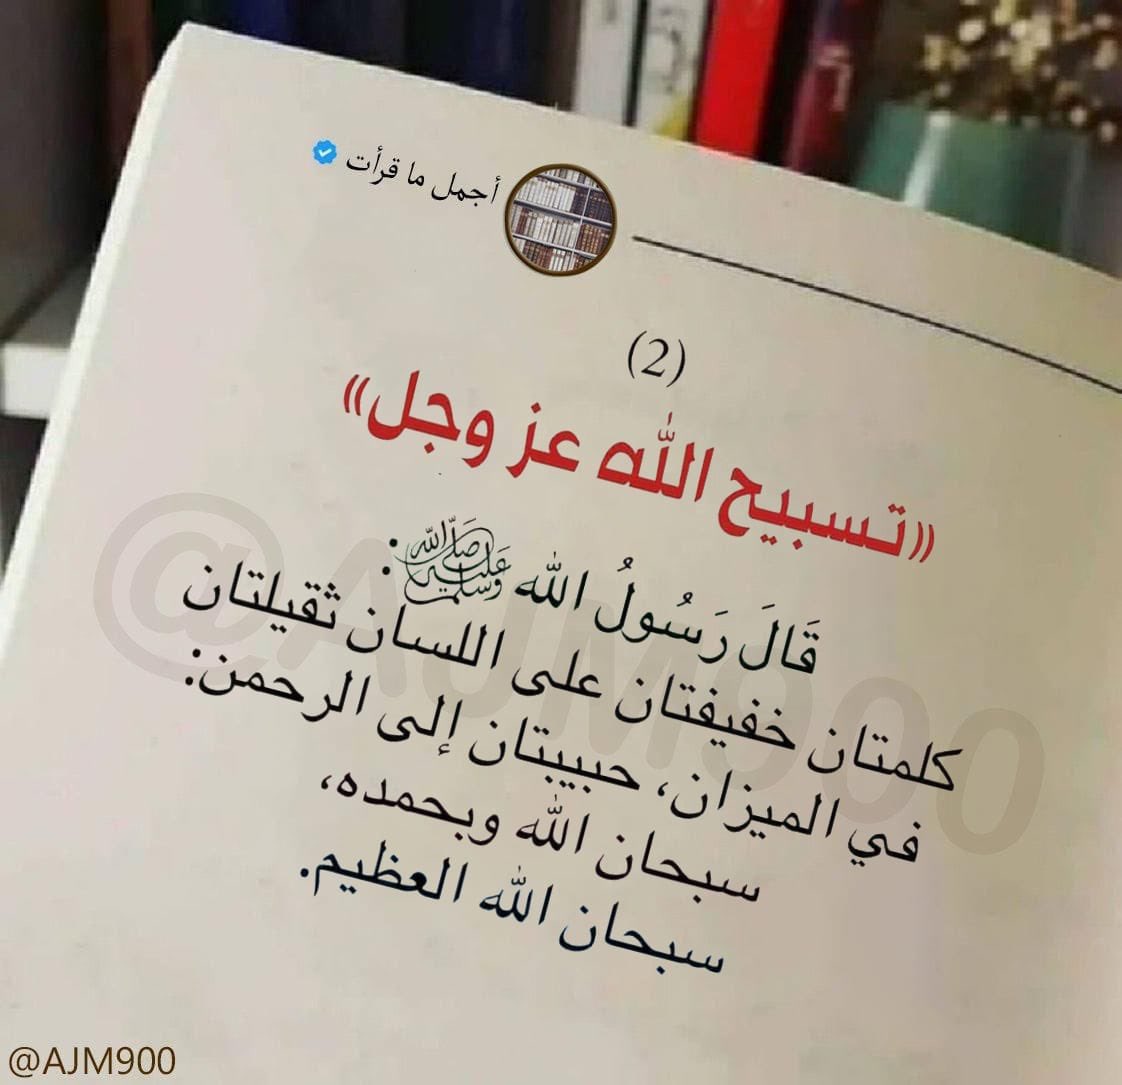 أجمل ما قرأت
(2)
«تسبيح الله عز وجل»
قَالَ رَسُولُ الله ﷺ:
كلمتان خفيفتان على اللسان ثقيلتان
في الميزان، حبيبتان إلى الرحمن:
سبحان الله وبحمده،
سبحان الله العظيم.
@AJM900
@AJM900